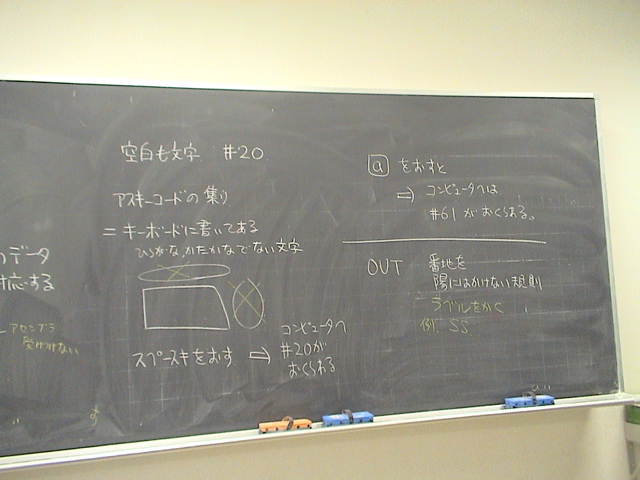 空白も文字 #20
アスキーコードの集り
= キーボードに書いてある
ひらがな、かたかなでない文字
スペースキをおす ⇒ コンピュータへ
#20が
おくられる
のデータ
対応する
アセンブラ
受けつけない
a をおすと
⇒ コンピュータへは
#61 がおくられる。
OUT 番地を
陽にはかけない規則
ラベルをかく
例. SS.